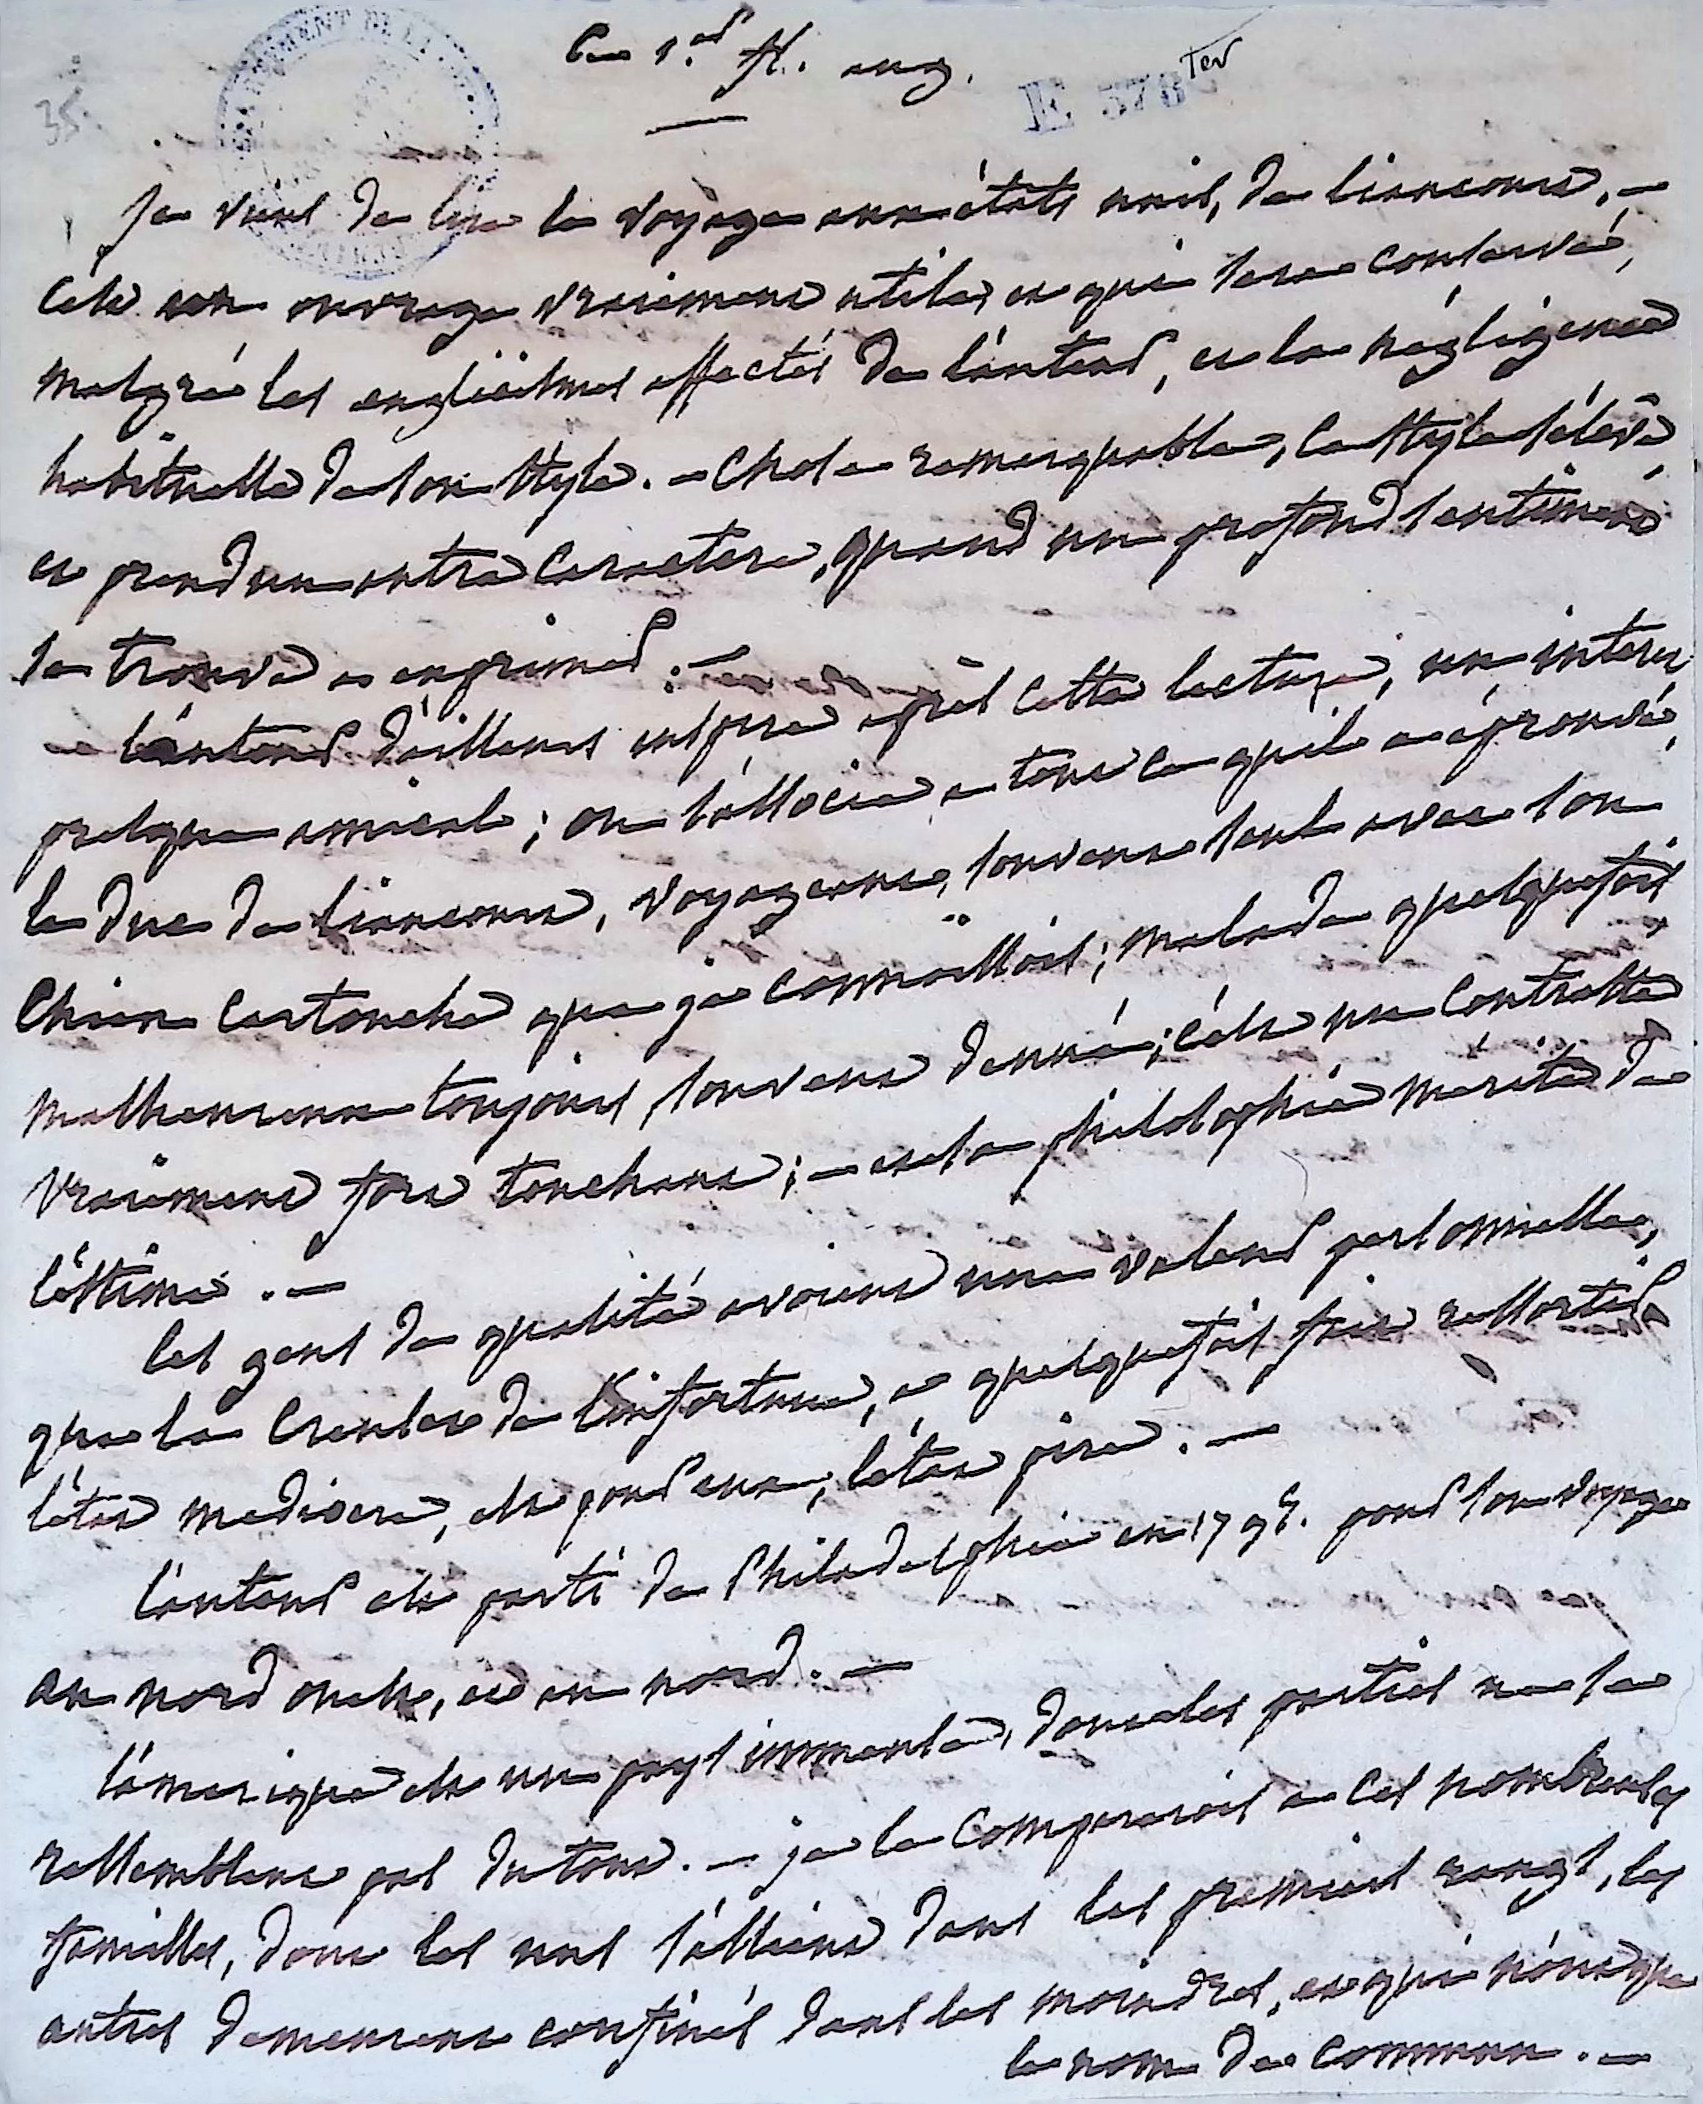 Ce 1.er fl. ang.
35.
E 378 Ter
je viens de lire le voyage aux états unis, de liancourt. —
c'est un ouvrage vraiment utile, et qui sera conservé,
malgré les anglicismes affectés de l'auteur, et la négligence
habituelle de son style. — Chose remarquable, ce style s'élève
et prend un autre caractere, quand un profond sentiment
se trouve a exprimer. —
— l'auteur d'ailleurs inspire après cette lecture, un interet
presque amical; on s'associe a tout ce qu'il a éprouvé,
le duc de liancourt, voyageant, souvent seul avec son
chien cartouche que je connoissois; malade quelquefois
malheureux toujours, souvent denué; c'est un contraste
vraiment fort touchant; — et sa philosophie mérite de
l'éstime. —
les gens de qualité avoient une valeur personnelle,
que le creuset de l'infortune, a quelquefois fait ressortir
l'état mediocre, est pour eux, l'état pire. —
l'auteur est parti de Philadelphie en 1795. pour son voyage
au nord ouest, et au nord. —
l'amerique est un pays immense, dont les parties ne se
ressemblent pas du tout. — je la comparerois a ces nombreuses
familles, dont les uns s'allient dans les premiers rangs, les
autres demeurent confinés dans les moindres, et qui n'ont que
le nom de commun. —